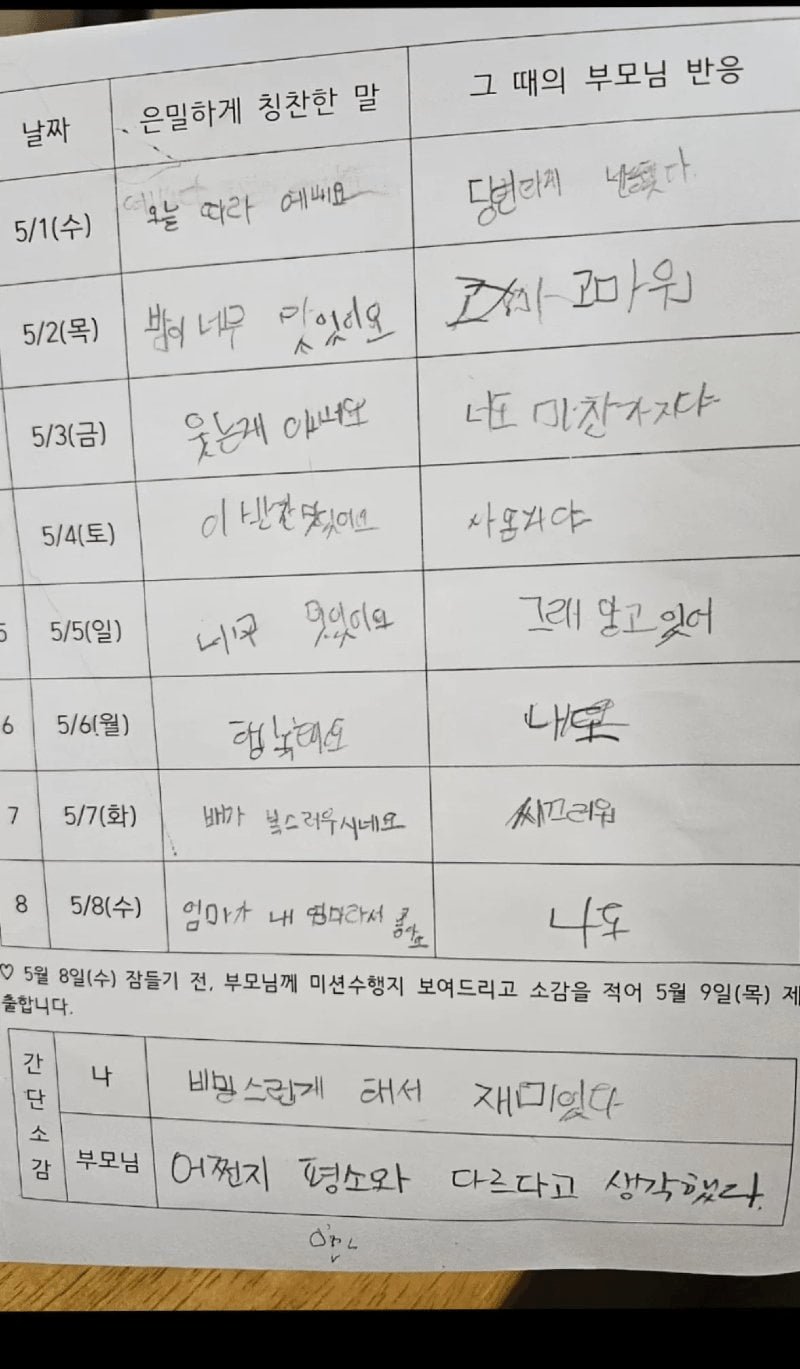 날짜 은밀하게 칭찬한 말 그 때의 부모님 반응
5/1(수) 오늘 따라 예뻐요
5/2(목) 밥이 너무 맛잇이요 고마워
5/3(금) 웃는게 너도 마찬가지야
5/4(토) 이 반찬 맛잇어요
5 5/5(일) 그래 알고 잇어
6 5/6(월)
7 5/7(화) 배가 복스러우시네요 씨끄러워
8 5/8(수) 엄마가 내 엄마라서 좋아요 나도
♡ 5월 8일(수) 잠들기 전, 부모님께 미션수행지 보여드리고 소감을 적어 5월 9일(목) 제
출합니다.
간단소감
나 비밍스런게 태서 재미잇다
부모님 어쩐지 평소와 다르다고 생각했다.